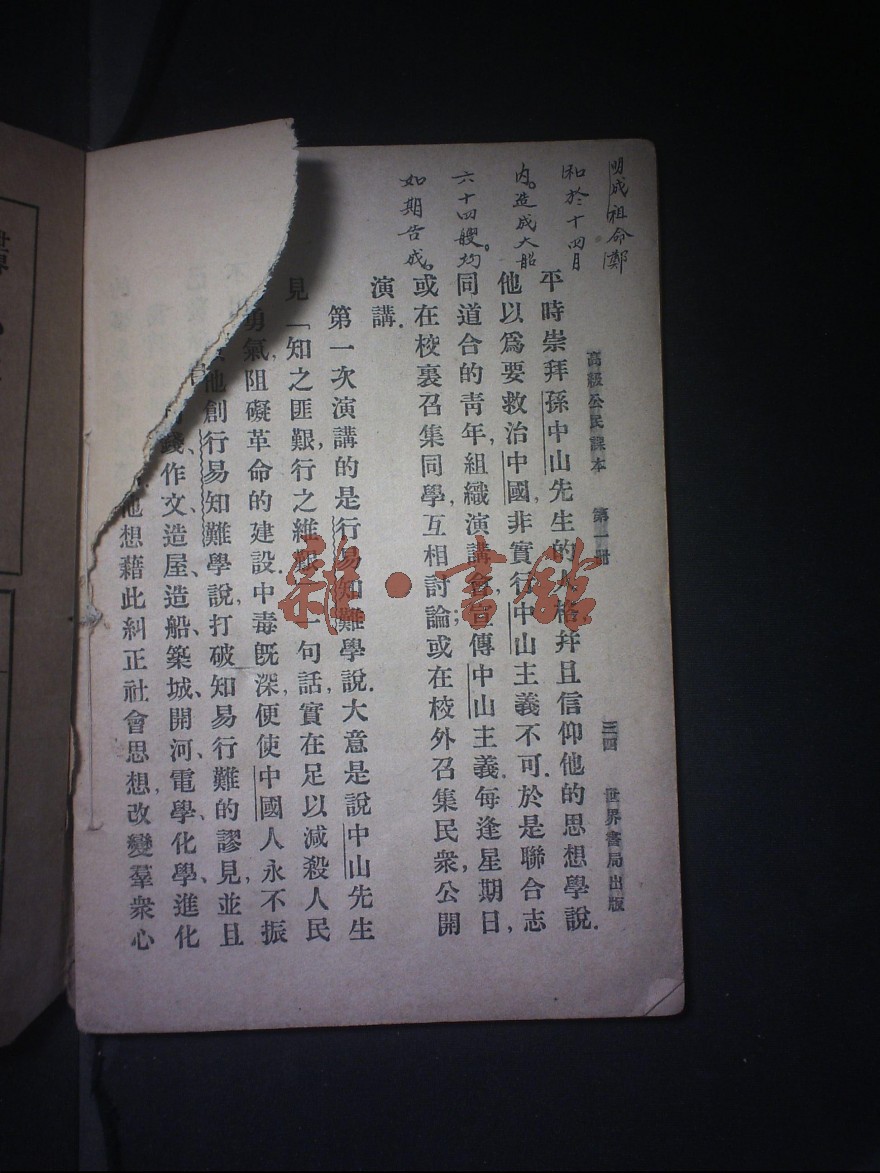 明成祖命鄭
和於十四月
內。造成大船
六十四艘。均
如期告成。
高級公民課本 第一冊 三四 世界書局出版
平時崇拜孫中山先生的人格,并且信仰他的思想學說.
他以爲要救治中國,非實行中山主義不可.於是聯合志
同道合的靑年,組織演講會,宣傳中山主義.每逢星期日,
或在校裏召集同學,互相討論;或在校外召集民衆,公開
演講.
第一次演講的是行易知難學說.大意是說中山先生
見「知之匪艱,行之維艱」一句話,實在足以減殺人民
勇氣,阻礙革命的建設.中毒旣深,便使中國人永不振
他創行易知難學說,打破知易行難的謬見,並且
錢、作文、造屋、造船、築城、開河、電學、化學、進化
他想藉此糾正社會思想,改變羣衆心
雜·書館